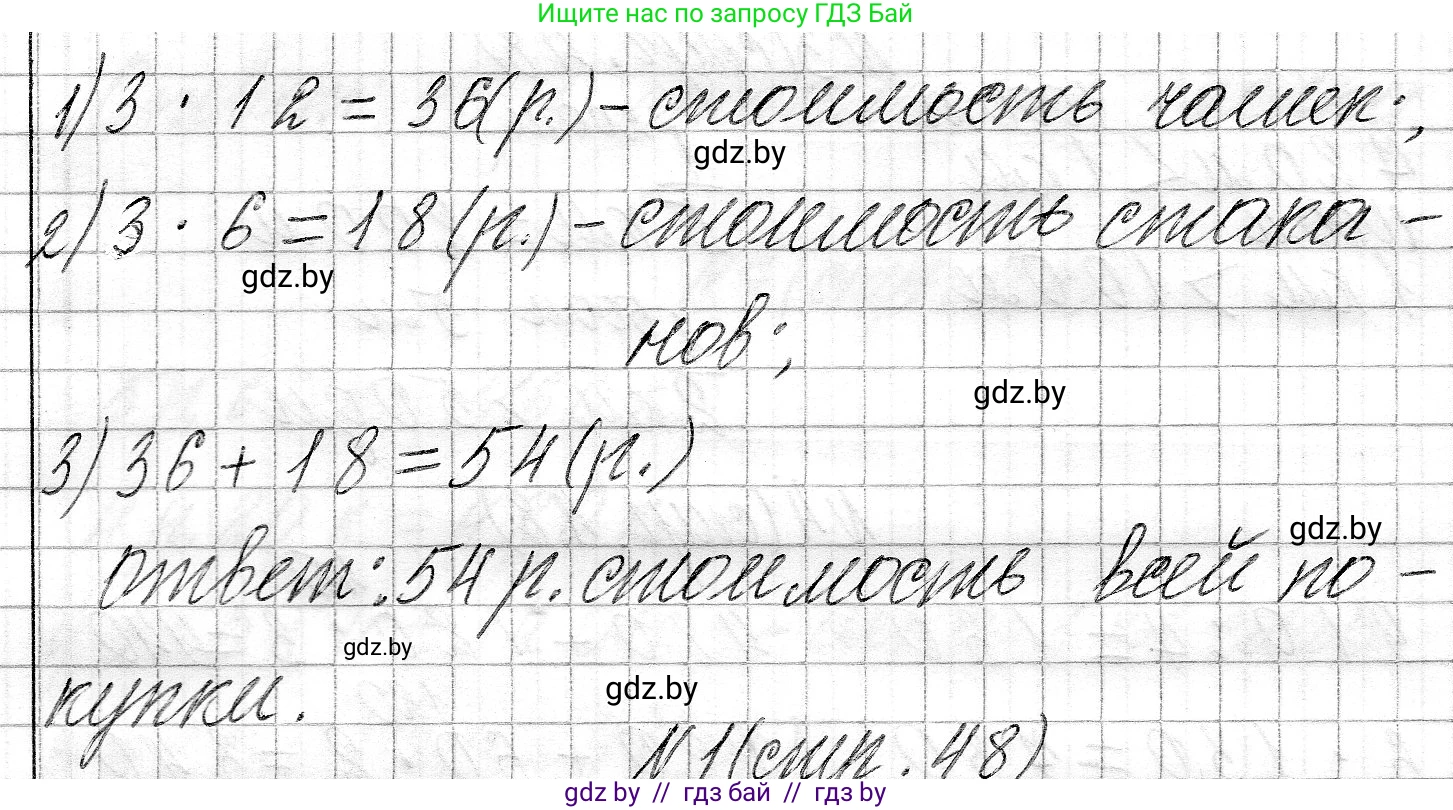 Ищите нас по запросу ГДЗ Бай
1) 3 · 12 = 36(р.) – стоимость чашек;
gdz.by
2) 3 · 6 = 18 (р.) – стоимость стака-
gdz.by
нов;
gdz.by
3) 36 + 18 = 54 (р.)
gdz.by
ответ: 54 р. стоимость всей по-
gdz.by
купки.
gdz.by
N 1 (стр. 48)
gdz by // гдз бай // гдз by